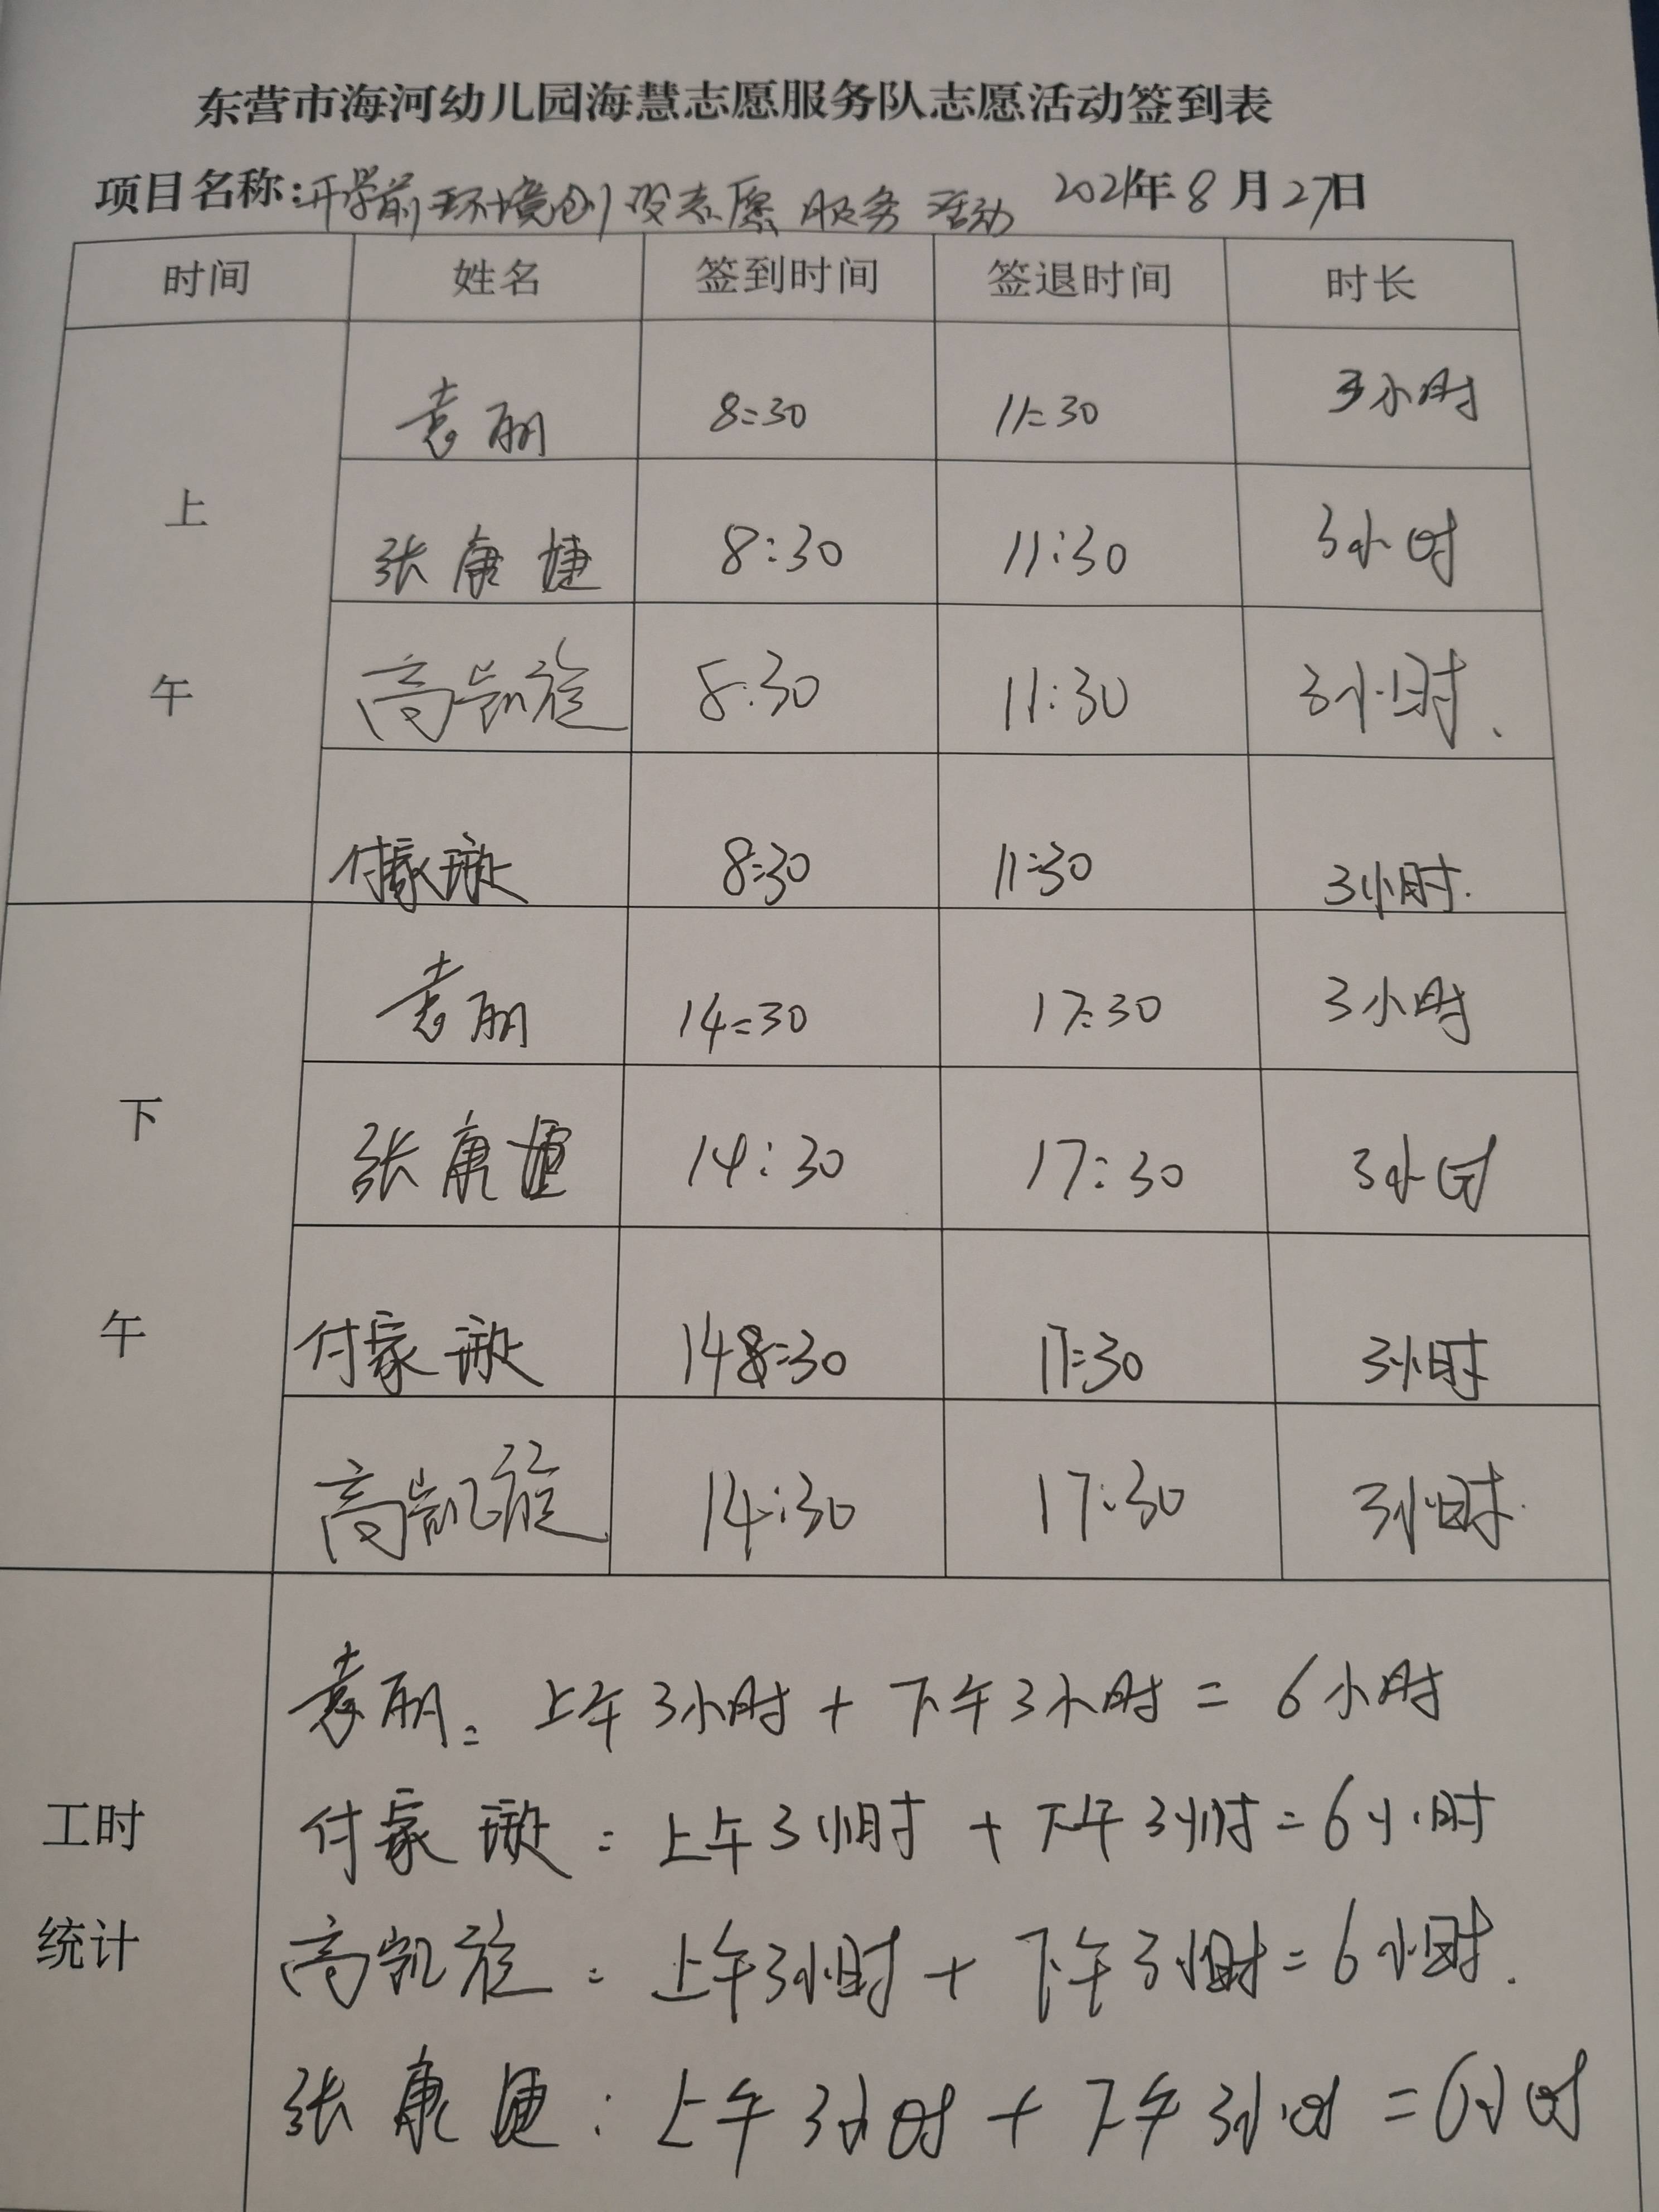 东营市海河幼儿园海慧志愿服务队志愿活动签到表
项目名称:开学前环境创设志愿服务活动 2021年8月27日
时间 姓名 签到时间 签退时间 时长
上午
袁丽 8:30 11:30 3小时
张康捷 8:30 11:30 3小时
高凯旋 8:30 11:30 3小时.
付家璇 8:30 11:30 3小时.
下午
袁丽 14:30 17:30 3小时
张康捷 14:30 17:30 3小时
付家璇 14:30 17:30 3小时
高凯旋 14:30 17:30 3小时.
工时
统计
袁丽: 上午3小时 + 下午3小时 = 6小时
付家璇: 上午3小时 + 下午3小时 = 6小时
高凯旋: 上午3小时 + 下午3小时 = 6小时.
张康捷: 上午3小时 + 下午3小时 = 6小时